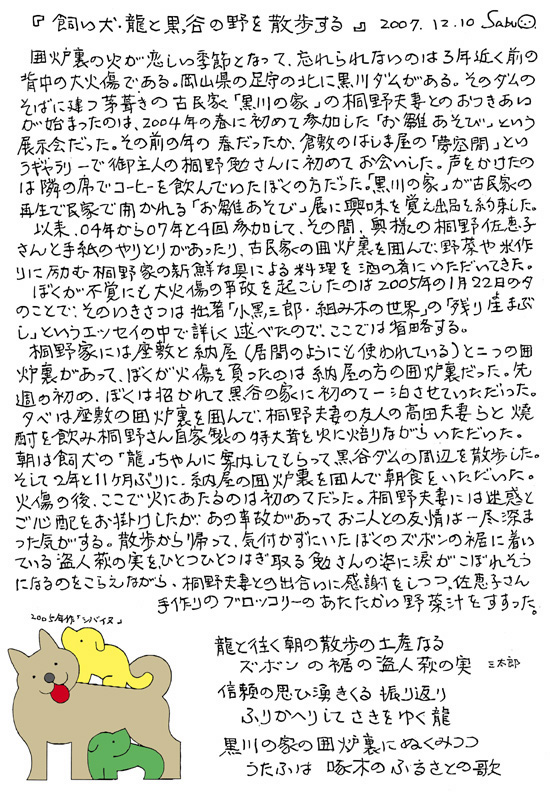 『飼い犬・龍と黒谷の野を散歩する』 2007.12.10 Sabu
囲炉裏の火が恋しい季節となって、忘れられないのは3年近く前の
背中の大火傷である。岡山県の足守の北に黒川ダムがある。そのダムの
そばに建つ茅葺きの古民家「黒川の家」の桐野夫妻とのおつきあい
が始まったのは、2004年の春に初めて参加した「お雛あそび」という
展示会だった。その前の年の春だったか、倉敷のはしま屋の「夢空間」とい
うギャラリーで御主人の桐野勉さんに初めてお会いした。声をかけたの
は隣の席でコーヒーを飲んでいたぼくの方だった。「黒川の家」が古民家の
再生で民家で開かれる「お雛あそび」展に興味を覚え出品を約束した。
以来、04年から07年と4回参加して、その間、奥様の桐野佐恵子
さんと手紙のやりとりがあったり、古民家の囲炉裏を囲んで、野菜や米作
りに励む桐野家の新鮮な具による料理を酒の肴にいただいてきた。
ぼくが不覚にも大火傷の事故を起こしたのは2005年の1月22日の夕
のことで、そのいきさつは拙著「小黒三郎・組み木の世界」の「残り崖まぶ
し」というエッセイの中で詳しく述べたので、ここでは省略する。
桐野家には座敷と納屋(居間のようにも使われている)と二つの囲
炉裏があって、ぼくが火傷を負ったのは納屋の方の囲炉裏だった。先
週の初め、ぼくは招かれて黒谷の家に初めて一泊させていただいた。
夕べは座敷の囲炉裏を囲んで、桐野夫妻の友人の高田夫妻らと焼
酎を飲み桐野さん自家製の特大茸を火に焙りながらいただいた。
朝は飼犬の「龍」ちゃんに案内してもらって、黒谷ダムの周辺を散歩した。
そして2年と11ヶ月ぶりに、納屋の囲炉裏を囲んで朝食をいただいた。
火傷の後、ここで火にあたるのは初めてだった。桐野夫妻には迷惑と
ご心配をお掛けしたが、あの事故があってお二人との友情は一層深ま
った気がする。散歩から帰って、気付かずにいたぼくのズボンの裾に着い
ている盗人萩の実をひとつひとつはぎ取る勉さんの姿に涙がこぼれそう
になるのをこらえながら、桐野夫妻との出合いに感謝をしつつ、佐恵子さん
手作りのブロッコリーのあたたかい野菜汁をすすった。
2005年作「シバイヌ」
龍と往く朝の散歩の土産なる
ズボンの裾の盗人萩の実 三太郎
信頼の思ひ湧きくる振り返り
ふりかへりしてさきをゆく龍
黒川の家の囲炉裏にぬくみつつ
うたふは啄木のふるさとの歌